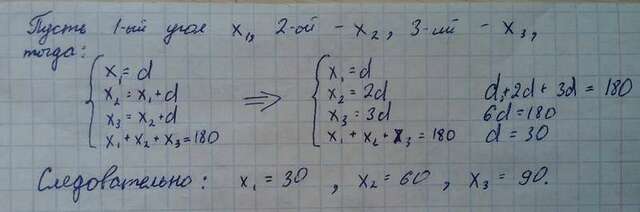 Пусть 1-ый угол x₁, 2-ой - x₂, 3-ий - x₃,
тогда:
x₁ = d
x₂ = x₁ + d
x₃ = x₂ + d
x₁ + x₂ + x₃ = 180
⇒
x₁ = d
x₂ = 2d
x₃ = 3d
x₁ + x₂ + x₃ = 180
d + 2d + 3d = 180
6d = 180
d = 30
Следовательно: x₁ = 30, x₂ = 60, x₃ = 90.